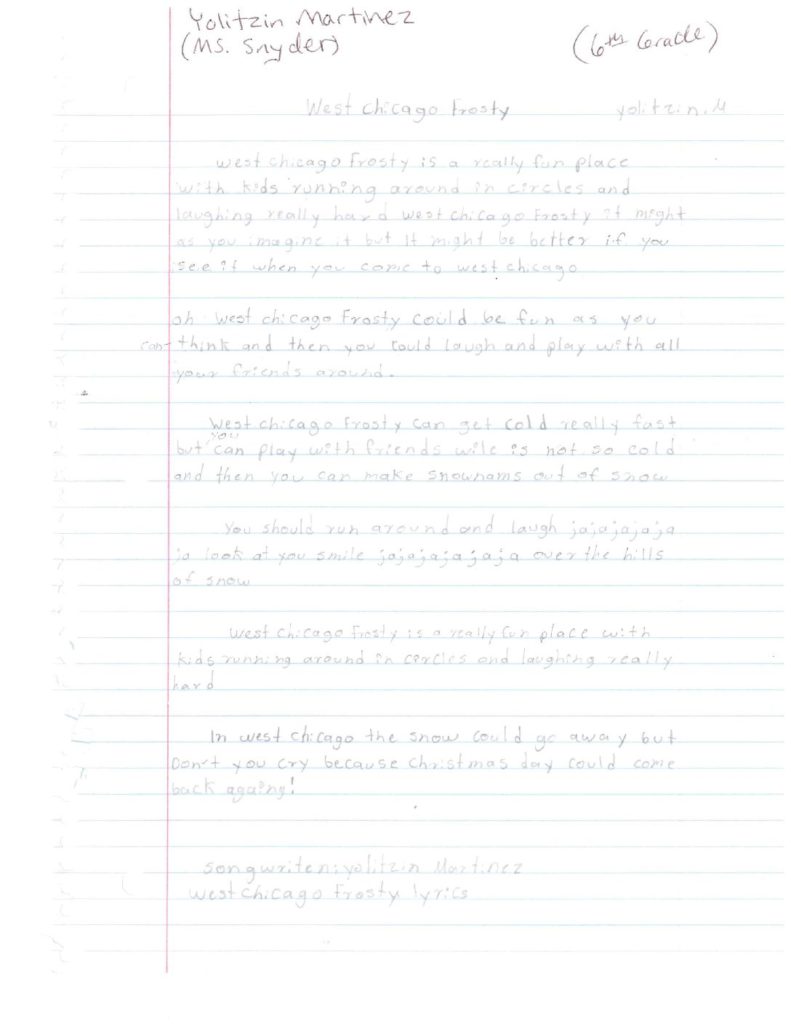 Yolitzin Martinez
(MS. Snyder)
(6th Grade)
West chicago Frosty
yolitzin.M
west chicago Frosty is a really fun place
with kids running around in circles and
laughing really hard west chicago Frosty it might
as you imagine it but It might be better if you
see it when you come to west chicago
oh West chicago Frosty could be fun as you
can think and then you could laugh and play with all
your friends around.
West chicago Frosty can get cold really fast
but you can play with friends wile is not so cold
and then you can make snownams out of snow
You should run around and laugh jajajajaja
ja look at you smile jajajajajaja over the hills
of snow
west chicago Frosty is a really fun place with
kids running around in circles and laughing really
hard
In west chicago the snow could go away but
Don't you cry because christmas day could come
back againg!
songwriten: yolitzin Martinez
west chicago Frosty lyrics